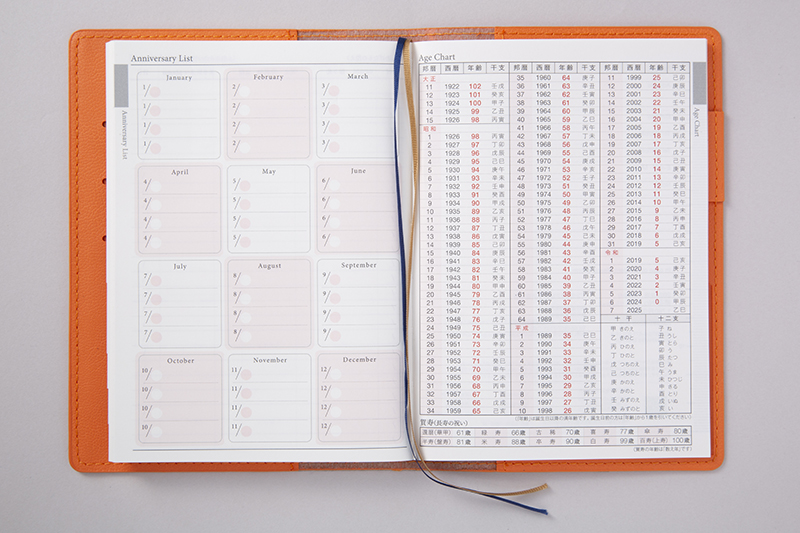 Anniversary List
Anniversary List
January
1/
1/
1/
1/
February
2/
2/
2/
2/
March
3/
3/
3/
3/
April
4/
4/
4/
4/
May
5/
5/
5/
5/
June
6/
6/
6/
6/
July
7/
7/
7/
7/
August
8/
8/
8/
8/
September
9/
9/
9/
9/
October
10/
10/
10/
10/
November
11/
11/
11/
11/
December
12/
12/
12/
12/
Age Chart
Age Chart
邦暦 西暦 年齢 干支
大正
11 1922 102 壬戌
12 1923 101 癸亥
13 1924 100 甲子
14 1925 99 乙丑
15 1926 98 丙寅
昭和
1 1926 98 丙寅
2 1927 97 丁卯
3 1928 96 戊辰
4 1929 95 己巳
5 1930 94 庚午
6 1931 93 辛未
7 1932 92 壬申
8 1933 91 癸酉
9 1934 90 甲戌
10 1935 89 乙亥
11 1936 88 丙子
12 1937 87 丁丑
13 1938 86 戊寅
14 1939 85 己卯
15 1940 84 庚辰
16 1941 83 辛巳
17 1942 82 壬午
18 1943 81 癸未
19 1944 80 甲申
20 1945 79 乙酉
21 1946 78 丙戌
22 1947 77 丁亥
23 1948 76 戊子
24 1949 75 己丑
25 1950 74 庚寅
26 1951 73 辛卯
27 1952 72 壬辰
28 1953 71 癸巳
29 1954 70 甲午
30 1955 69 乙未
31 1956 68 丙申
32 1957 67 丁酉
33 1958 66 戊戌
34 1959 65 己亥
邦暦 西暦 年齢 干支
35 1960 64 庚子
36 1961 63 辛丑
37 1962 62 壬寅
38 1963 61 癸卯
39 1964 60 甲辰
40 1965 59 乙巳
41 1966 58 丙午
42 1967 57 丁未
43 1968 56 戊申
44 1969 55 己酉
45 1970 54 庚戌
46 1971 53 辛亥
47 1972 52 壬子
48 1973 51 癸丑
49 1974 50 甲寅
50 1975 49 乙卯
51 1976 48 丙辰
52 1977 47 丁巳
53 1978 46 戊午
54 1979 45 己未
55 1980 44 庚申
56 1981 43 辛酉
57 1982 42 壬戌
58 1983 41 癸亥
59 1984 40 甲子
60 1985 39 乙丑
61 1986 38 丙寅
62 1987 37 丁卯
63 1988 36 戊辰
64 1989 35 己巳
平成
1 1989 35 己巳
2 1990 34 庚午
3 1991 33 辛未
4 1992 32 壬申
5 1993 31 癸酉
6 1994 30 甲戌
7 1995 29 乙亥
8 1996 28 丙子
9 1997 27 丁丑
10 1998 26 戊寅
邦暦 西暦 年齢 干支
11 1999 25 己卯
12 2000 24 庚辰
13 2001 23 辛巳
14 2002 22 壬午
15 2003 21 癸未
16 2004 20 甲申
17 2005 19 乙酉
18 2006 18 丙戌
19 2007 17 丁亥
20 2008 16 戊子
21 2009 15 己丑
22 2010 14 庚寅
23 2011 13 辛卯
24 2012 12 壬辰
25 2013 11 癸巳
26 2014 10 甲午
27 2015 9 乙未
28 2016 8 丙申
29 2017 7 丁酉
30 2018 6 戊戌
31 2019 5 己亥
令和
1 2019 5 己亥
2 2020 4 庚子
3 2021 3 辛丑
4 2022 2 壬寅
5 2023 1 癸卯
6 2024 0 甲辰
7 2025 乙巳
十干
甲 きのえ
乙 きのと
丙 ひのえ
丁 ひのと
戊 つちのえ
己 つちのと
庚 かのえ
辛 かのと
壬 みずのえ
癸 みずのと
十二支
子 ね
丑 うし
寅 とら
卯 う
辰 たつ
巳 み
午 うま
未 ひつじ
申 さる
酉 とり
戌 いぬ
亥 い
賀寿(長寿の祝い)
還暦(華甲) 61歳 緑寿 66歳 古稀 70歳 喜寿 77歳 傘寿 80歳
半寿(盤寿) 81歳 米寿 88歳 卒寿 90歳 白寿 99歳 百寿(上寿) 100歳
(賀寿の年齢は「数え年」です)